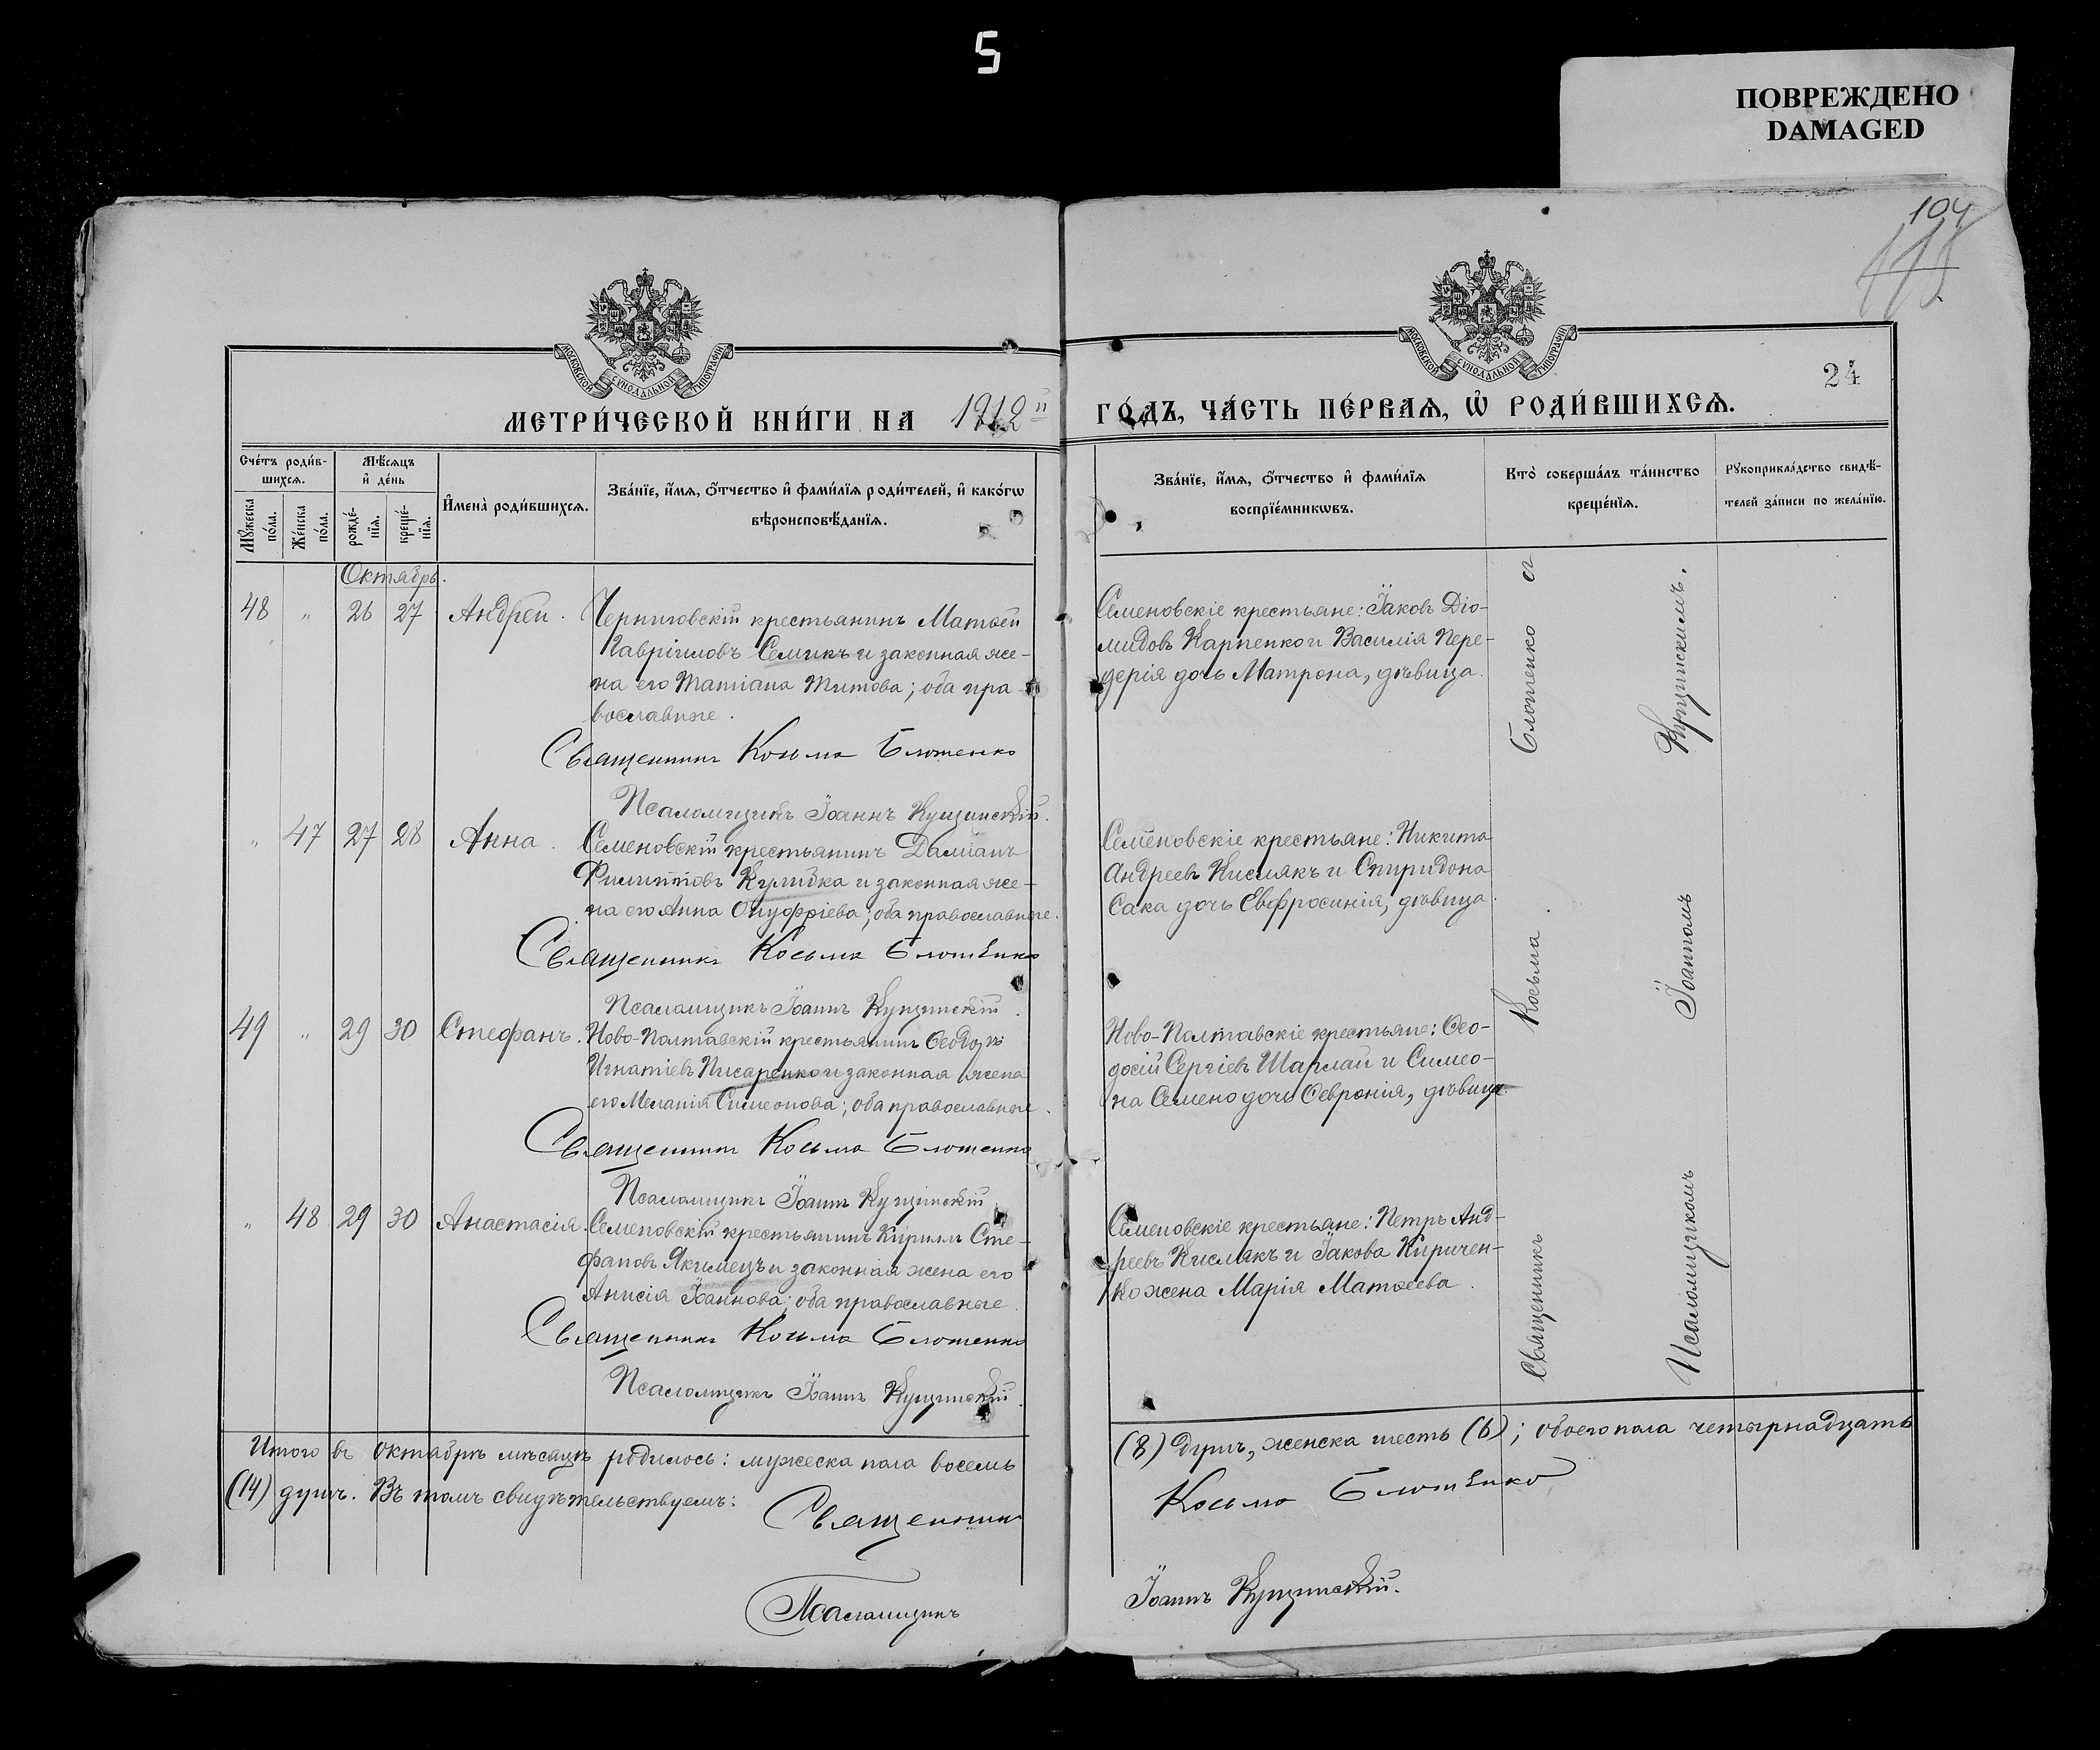 5
ПОВРЕЖДЕНО
DAMAGED
104
115
24
МОСКОВСКОЙ СУНОДАЛЬНОЙ ТИПОГРАФІИ
МОСКОВСКОЙ СУНОДАЛЬНОЙ ТИПОГРАФІИ
МЕТРИ́ЧЕСКОЙ КНИ́ГИ НА 1912й ГО́ДЪ, ЧА́СТЬ ПЕ́РВАѦ, Ѡ҆ РОДИ́ВШИХСѦ.
Сче́тъ роди́в-
шихсѧ.
Мꙋ́жеска по́ла.
Же́нска по́ла.
Мѣ́сѧцъ и҆ де́нь
рожде́-нїѧ.
креще́-нїѧ.
И҆мена̀ роди́вшихсѧ.
Зва́нїе, и҆́мѧ, ѻ҆́тчество и҆ фами́лїѧ роди́телей, и҆ како́гѡ
вѣроисповѣ́данїѧ.
Зва́нїе, и҆́мѧ, ѻ҆́тчество и҆ фами́лїѧ
воспрїе́мникѡвъ.
Кто̀ соверша́лъ та́инство
креще́нїѧ.
Рꙋкоприкла́дство свидѣ́-
телей за́писи по жела́нїю.
Октябрь.
48 " 26 27 Андрей. Черниговскій крестьянинъ Матѳей
Гавріиловъ Семикъ и законная же-
на его Татіана Титова; оба пра-
вославные.
Священникъ Косьма Блотенко
Псаломщикъ Іоаннъ Кущинскій.
Семеновскіе крестьяне: Іаковъ Діо-
мидовъ Карпенко и Василія Пере-
дерія дочь Матрона, дѣвица.
" 47 27 28 Анна. Семеновскій крестьянинъ Даміанъ
Филипповъ Кулибка и законная же-
на его Анна Онуфріева; оба православные.
Священникъ Косьма Блотенко
Псаломщикъ Іоаннъ Кущинскій.
Семеновскіе крестьяне: Никита
Андреевъ Кислякъ и Спиридона
Сака дочь Евфросинія, дѣвица.
49 " 29 30 Стефанъ. Ново-Полтавскій крестьянинъ Ѳеодоръ
Игнатіевъ Писаренко и законная жена
его Меланія Симеонова; оба православные.
Священникъ Косьма Блотенко
Псаломщикъ Іоаннъ Кущинскій
Ново-Полтавскіе крестьяне: Ѳео-
досій Сергіевъ Шаплай и Симео-
на Семено дочь Ѳевронія, дѣвица
" 48 29 30 Анастасія. Семеновскій крестьянинъ Кириллъ Сте-
фановъ Якимецъ и законная жена его
Анисія Іоаннова; оба православные.
Священникъ Косьма Блотенко
Псаломщикъ Іоаннъ Кущинскій.
Семеновскіе крестьяне: Петръ Анд-
реевъ Кислякъ и Іакова Киричен-
ко жена Марія Матѳеева.
Священникъ Косьма Блотенко съ
Псаломщикомъ Іоанномъ Кущинскимъ.
Итого въ октябрѣ мѣсяцѣ родилось: мужеска пола восемь (8) душъ, женска шесть (6); обоего пола четырнадцать
(14) душъ. Въ томъ свидѣтельствуемъ:
Священникъ Косьма Блотенко
Псаломщикъ Іоаннъ Кущинскій.